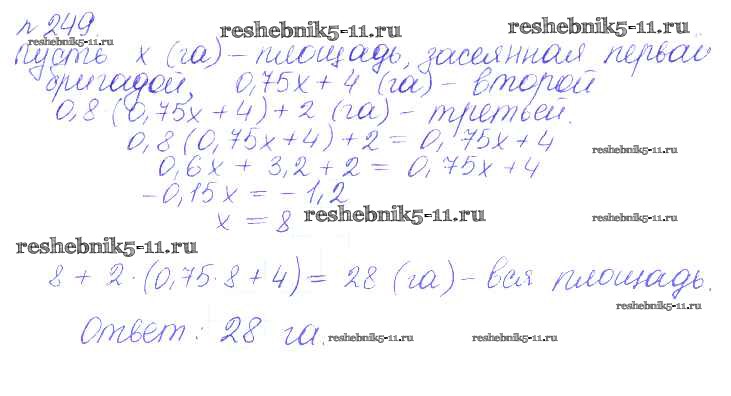 № 249.
reshebnik5-11.ru reshebnik5-11.ru
reshebnik5-11.ru
Пусть x (га) – площадь, засеянная первой
бригадой, 0,75x + 4 (га) – второй
0,8 (0,75x + 4) + 2 (га) – третьей.
0,8 (0,75x + 4) + 2 = 0,75x + 4
reshebnik5-11.ru
0,6x + 3,2 + 2 = 0,75x + 4
-0,15x = -1,2
x = 8 reshebnik5-11.ru reshebnik5-11.ru
reshebnik5-11.ru
8 + 2·(0,75·8 + 4) = 28 (га) – вся площадь.
reshebnik5-11.ru
Ответ: 28 га. reshebnik5-11.ru reshebnik5-11.ru